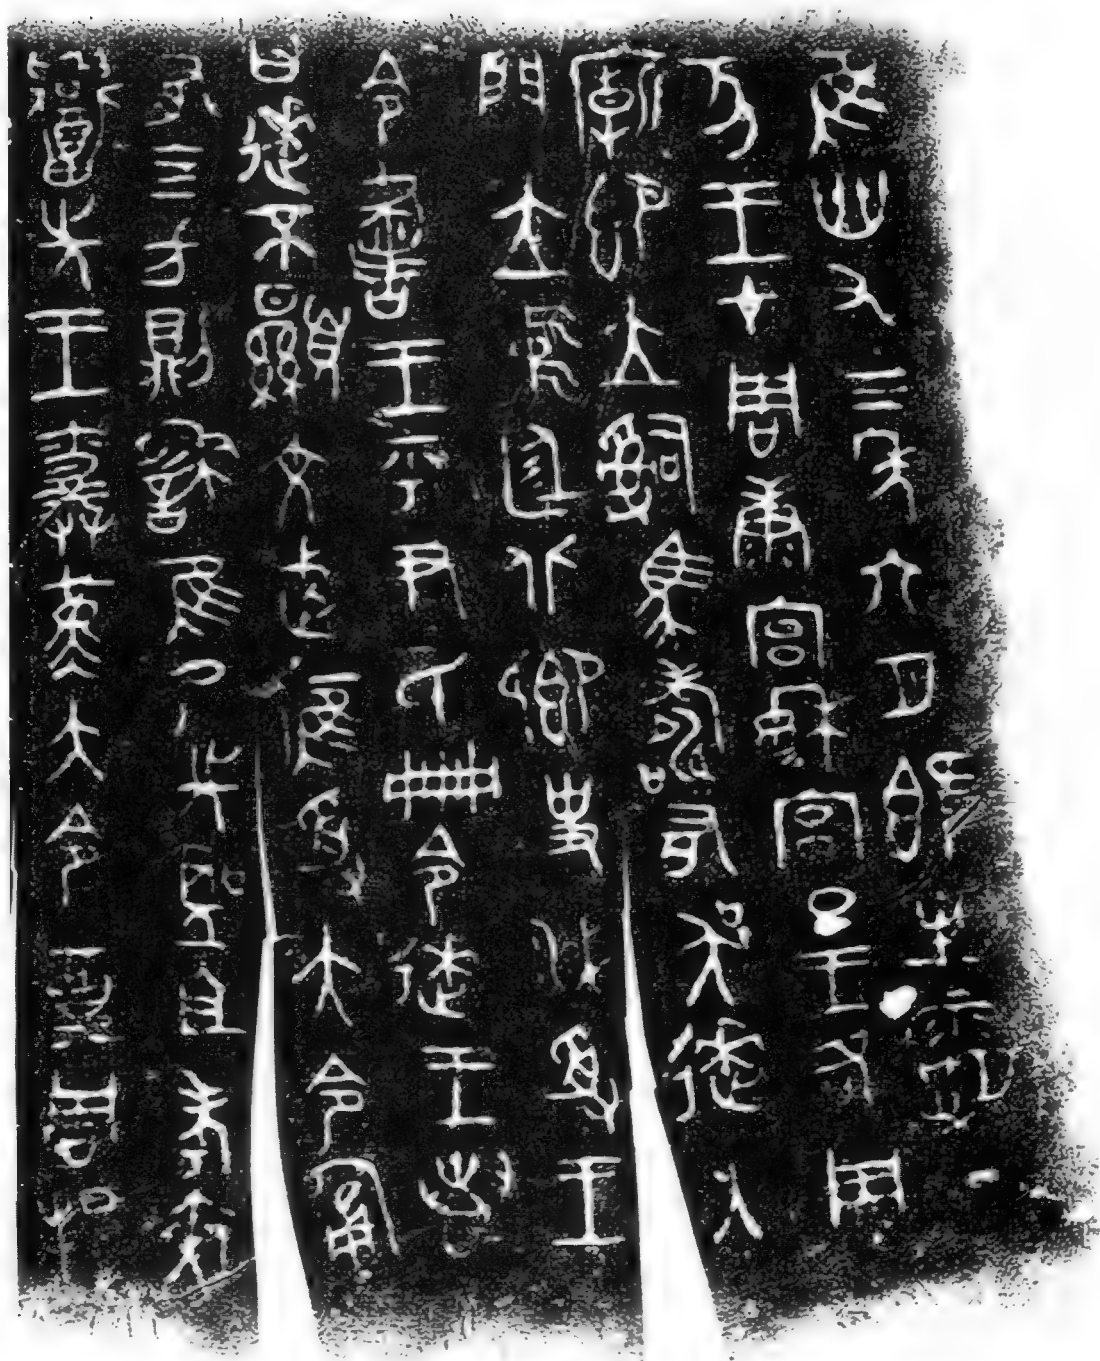 隹卌又三年六月既生霸丁
亥王才周康宮穆宮旦王各周
廟即立𤔲馬壽右吳逨入
門立中廷北鄉史減受王
令書王乎尹氏冊令逨王若
曰逨不顯文武膺受大令匍
有四方則繇隹乃先聖且考夾
召先王爵堇大令奠周邦